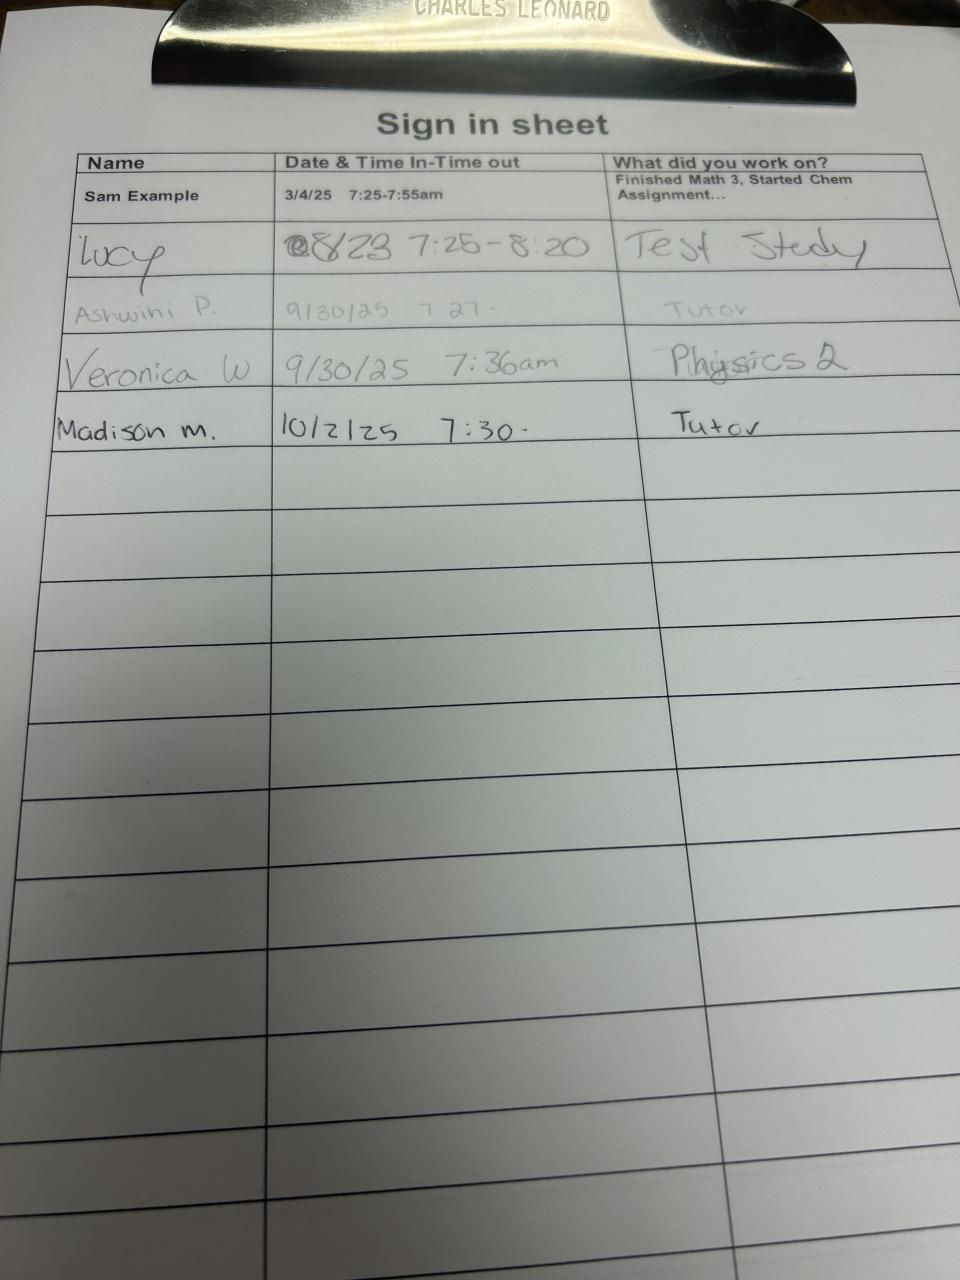 CHARLES LEONARD
Sign in sheet
Name Date & Time In-Time out What did you work on?
Sam Example 3/4/25 7:25-7:55am Finished Math 3, Started Chem
Assignment...
Lucy 8/23 7:25-8:20 Test Study
Ashwini P. 9/30/25 7:27- Tutor
Veronica W 9/30/25 7:36am Physics 2
Madison M. 10/2/25 7:30- Tutor